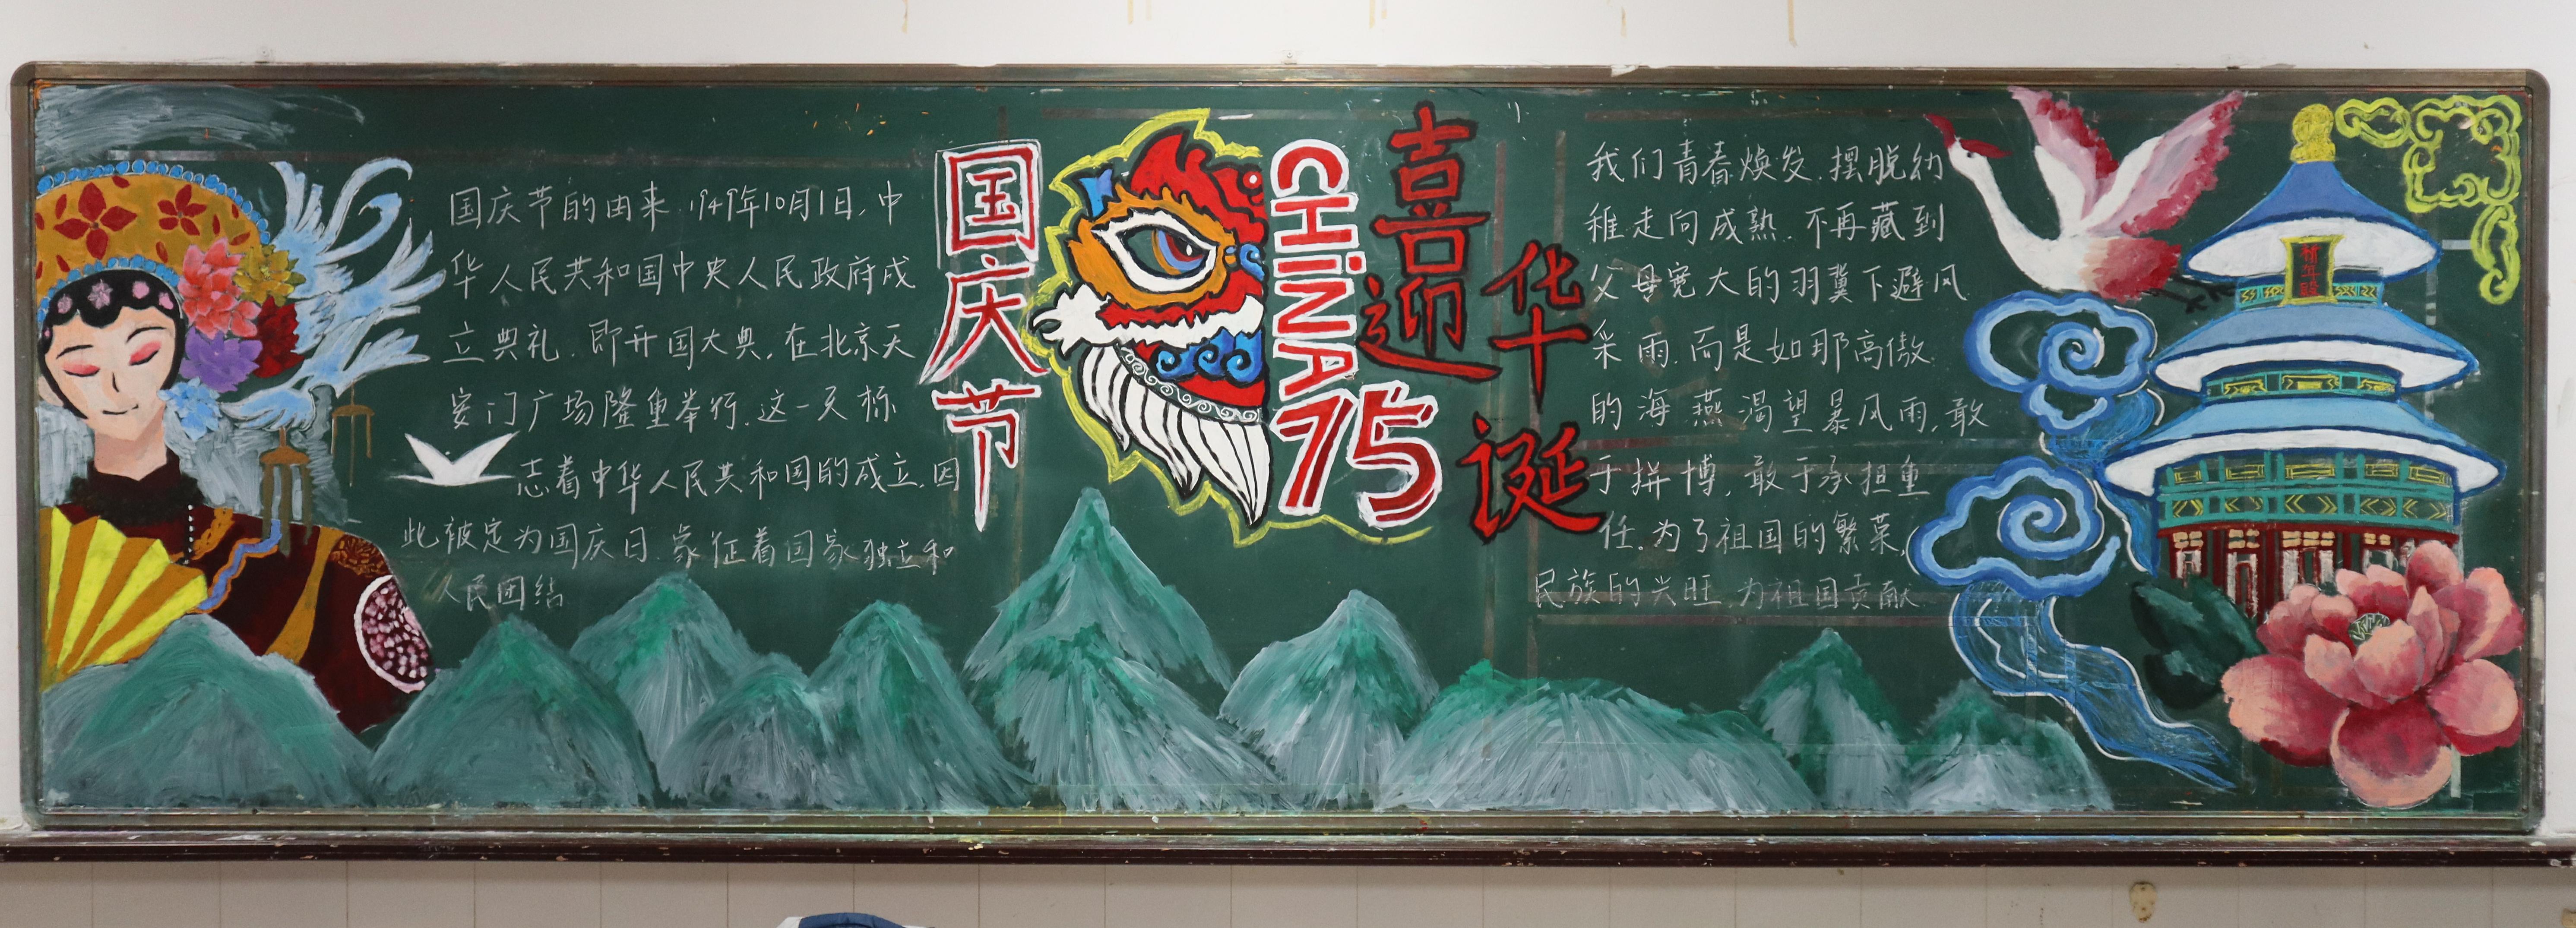 国庆节的由来.1949年10月1日,中
华人民共和国中央人民政府成
立典礼.即开国大典,在北京天
安门广场隆重举行.这一天标
志着中华人民共和国的成立.因
此被定为国庆日.象征着国家独立和
人民团结
国庆节
CHiNA
75
喜迎华诞
我们青春焕发.摆脱幼
稚走向成熟.不再藏到
父母宽大的羽翼下避风
采雨.而是如那高傲
的海燕渴望暴风雨,敢
于拼博,敢于承担重
任.为了祖国的繁荣,
民族的兴旺.为祖国贡献
祈年殿